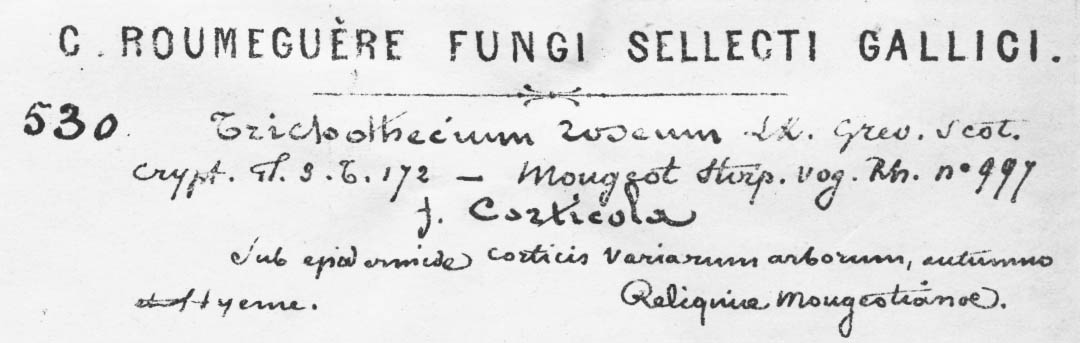 C. ROUMEGUÈRE FUNGI SELLECTI GALLICI.
530 Trichothecium roseum LK. Grev. Scot.
crypt. Fl. 3. T. 172 — Mougeot Stirp. vog. Rh. n° 997
f. Corticola
Sub epidermide corticis variarum arborum, autumno
et Hyeme. Reliquiæ Mougeotianæ.